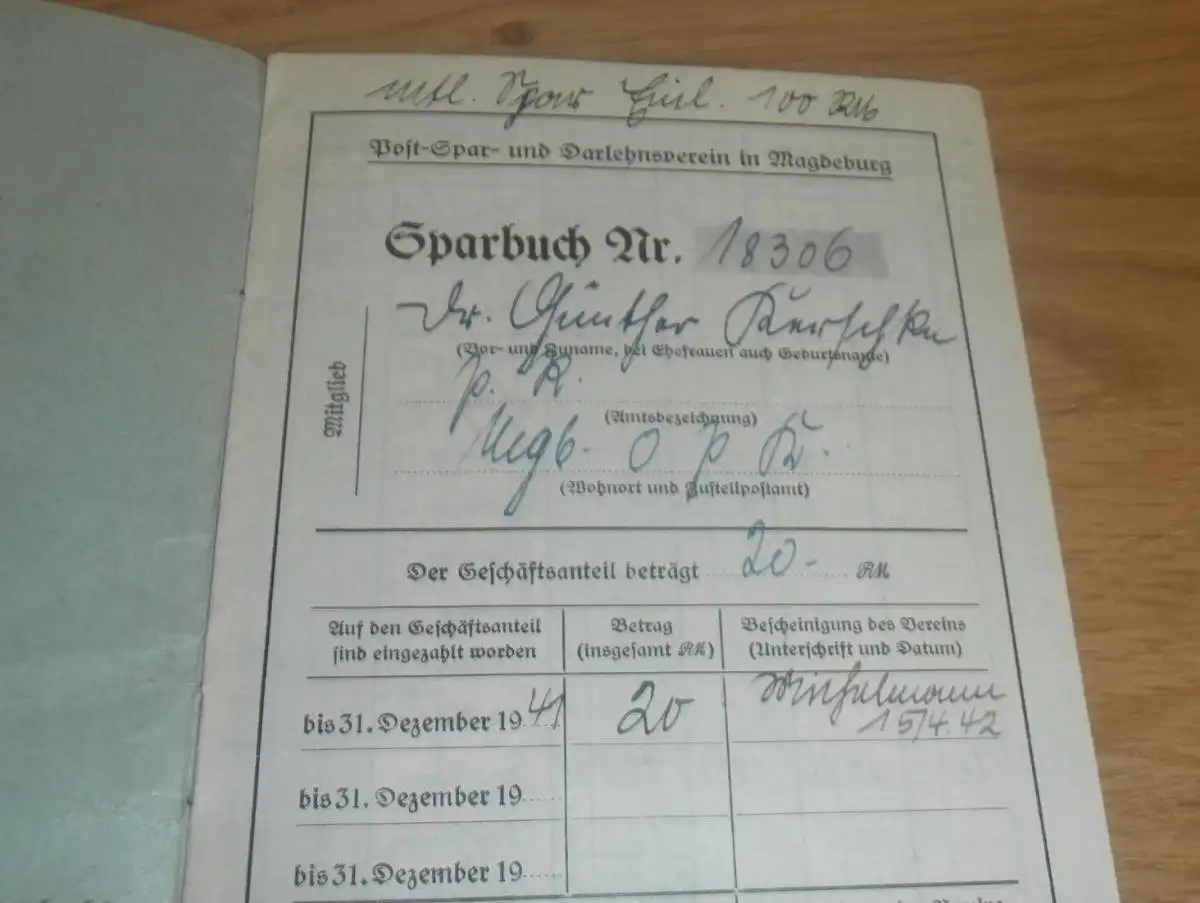 mtl. Spar Einl. 100 RM
Post-Spar- und Darlehnsverein in Magdeburg
Sparbuch Nr. 18306
Dr. Günther
(Vor- und Zuname, bei Ehefrauen auch Geburtsname)
Mitglieb
P. R.
(Amtsbezeichnung)
Mgb. O P K.
(Wohnort und Zustellpostamt)
Der Geschäftsanteil beträgt 20.- RM
Auf den Geschäftsanteil sind eingezahlt worden
Betrag (insgesamt RM)
Bescheinigung des Vereins (Unterschrift und Datum)
bis 31. Dezember 1941 20
15/4.42
bis 31. Dezember 19
bis 31. Dezember 19